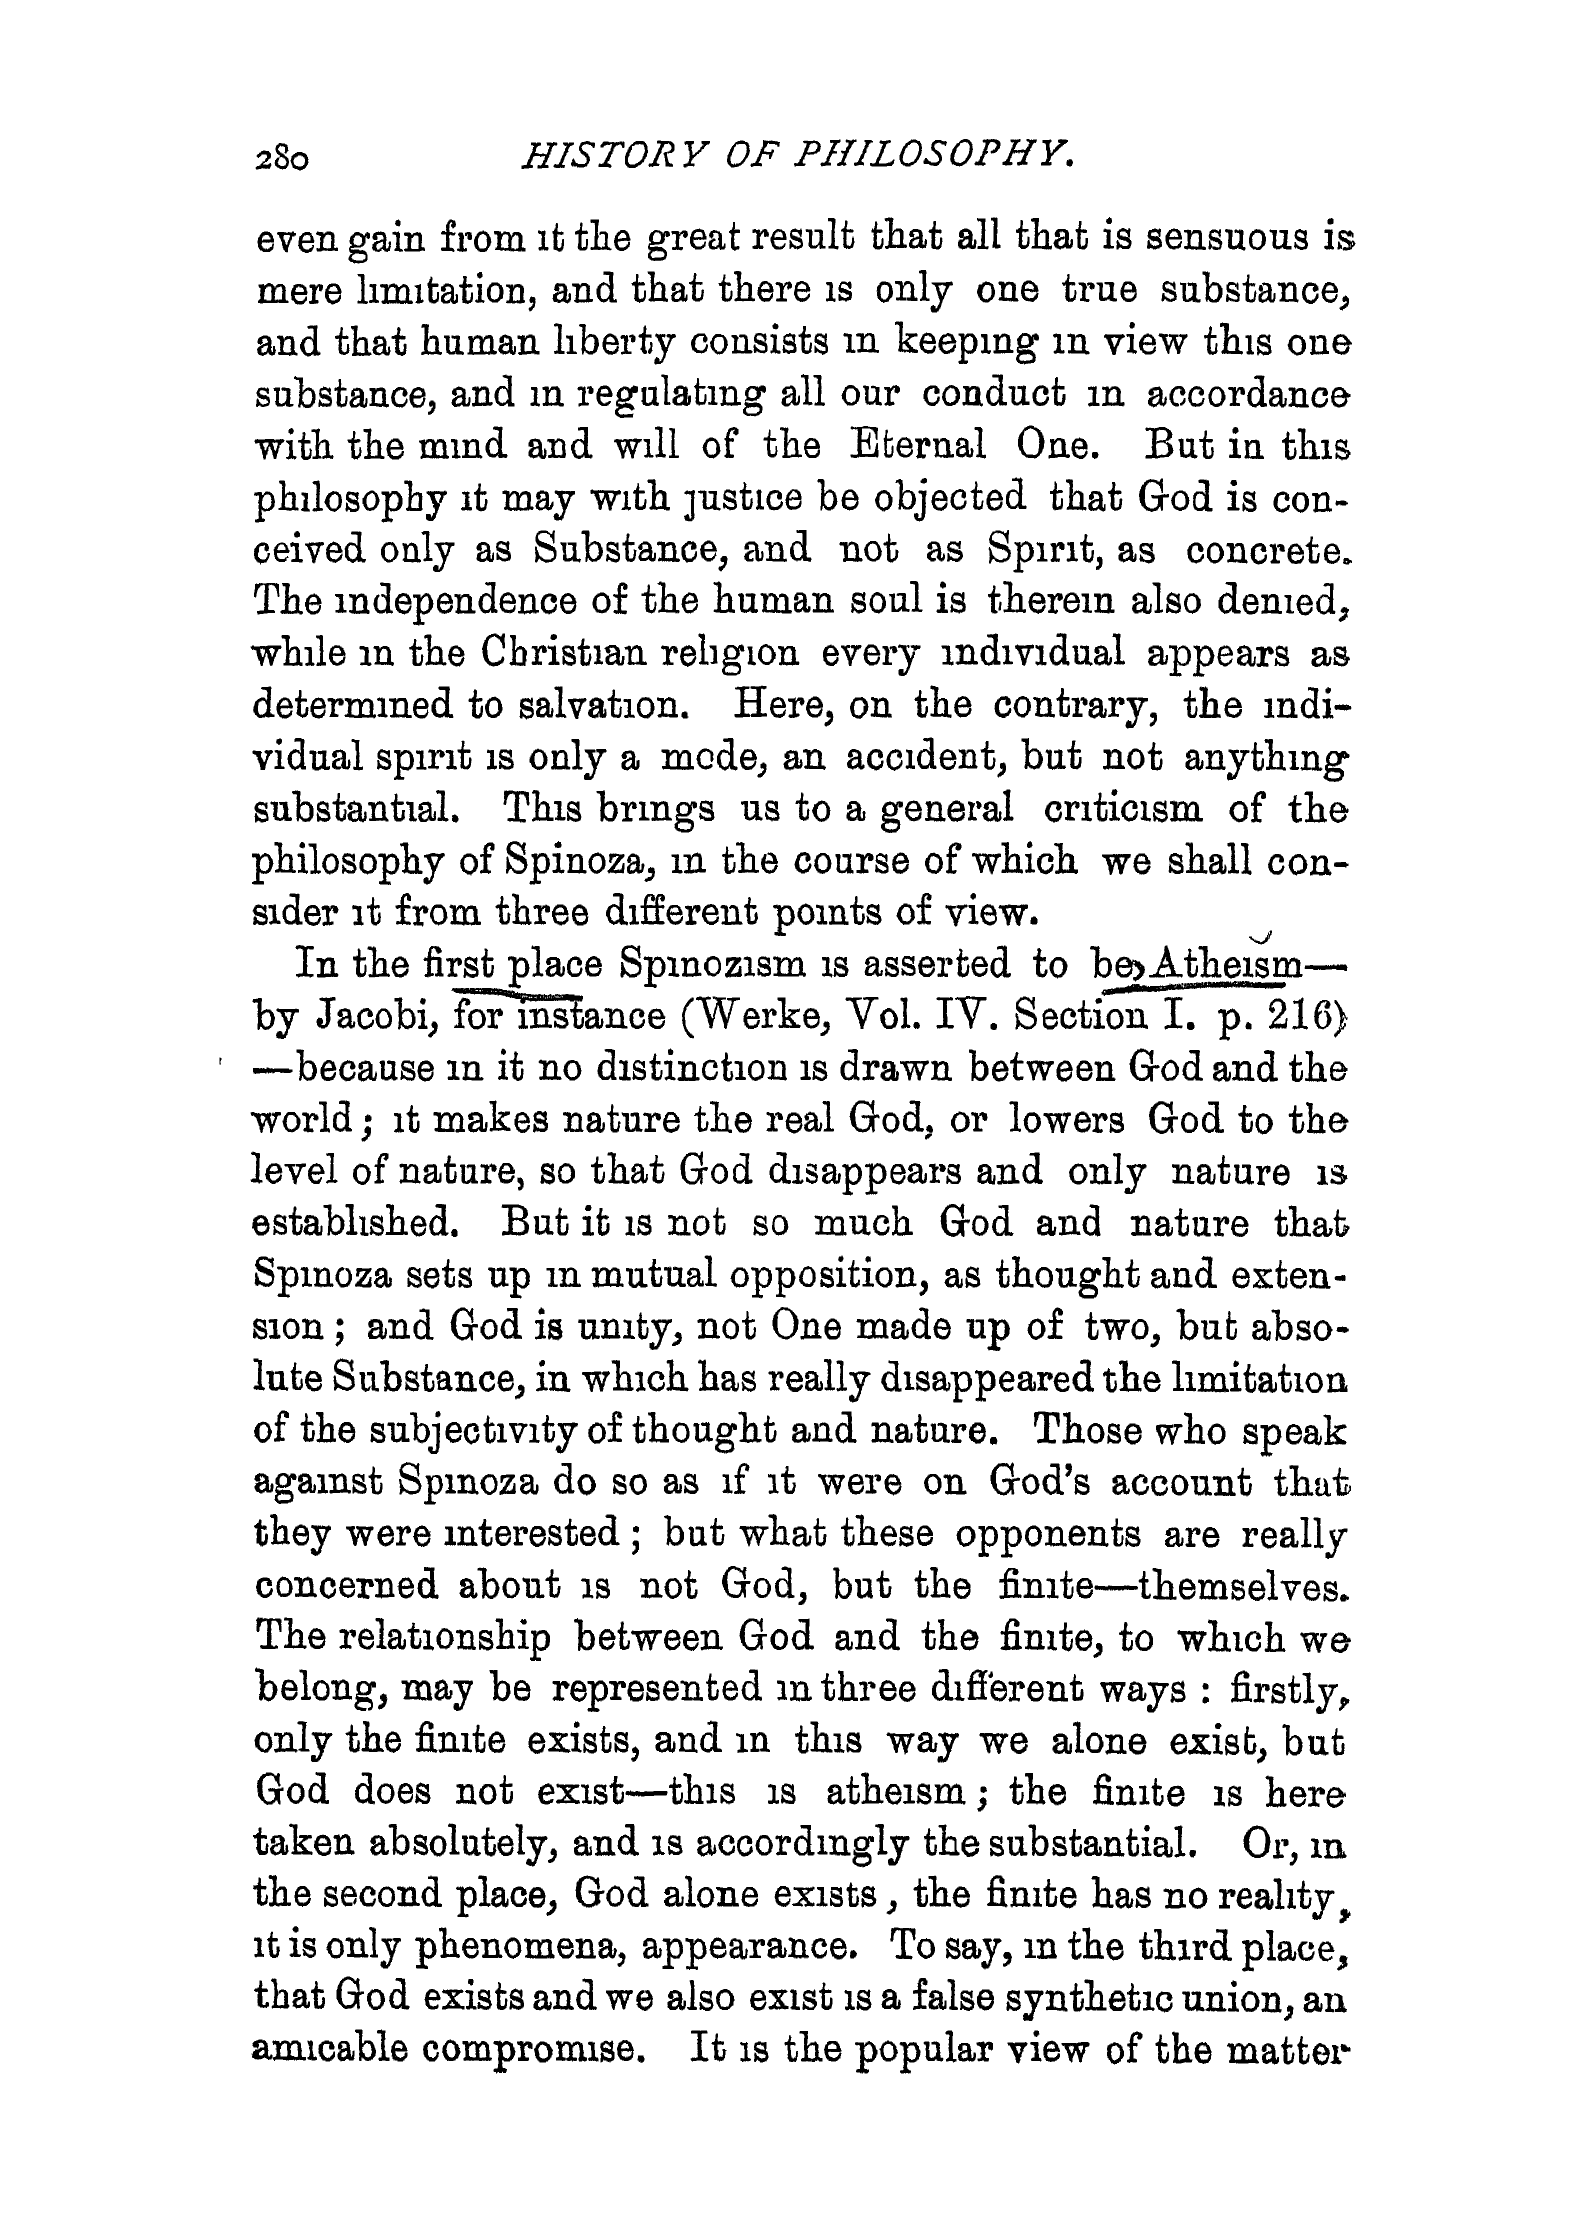 280 HISTORY OF PHILOSOPHY.
even gain from it the great result that all that is sensuous is
mere limitation, and that there is only one true substance,
and that human liberty consists in keeping in view this one
substance, and in regulating all our conduct in accordance
with the mind and will of the Eternal One. But in this
philosophy it may with justice be objected that God is con-
ceived only as Substance, and not as Spirit, as concrete.
The independence of the human soul is therein also denied,
while in the Christian religion every individual appears as
determined to salvation. Here, on the contrary, the indi-
vidual spirit is only a mode, an accident, but not anything
substantial. This brings us to a general criticism of the
philosophy of Spinoza, in the course of which we shall con-
sider it from three different points of view.
In the first place Spinozism is asserted to be Atheism—
by Jacobi, for instance (Werke, Vol. IV. Section I. p. 216)
—because in it no distinction is drawn between God and the
world; it makes nature the real God, or lowers God to the
level of nature, so that God disappears and only nature is
established. But it is not so much God and nature that
Spinoza sets up in mutual opposition, as thought and exten-
sion; and God is unity, not One made up of two, but abso-
lute Substance, in which has really disappeared the limitation
of the subjectivity of thought and nature. Those who speak
against Spinoza do so as if it were on God's account that
they were interested; but what these opponents are really
concerned about is not God, but the finite—themselves.
The relationship between God and the finite, to which we
belong, may be represented in three different ways: firstly,
only the finite exists, and in this way we alone exist, but
God does not exist—this is atheism; the finite is here
taken absolutely, and is accordingly the substantial. Or, in
the second place, God alone exists, the finite has no reality,
it is only phenomena, appearance. To say, in the third place,
that God exists and we also exist is a false synthetic union, an
amicable compromise. It is the popular view of the matter